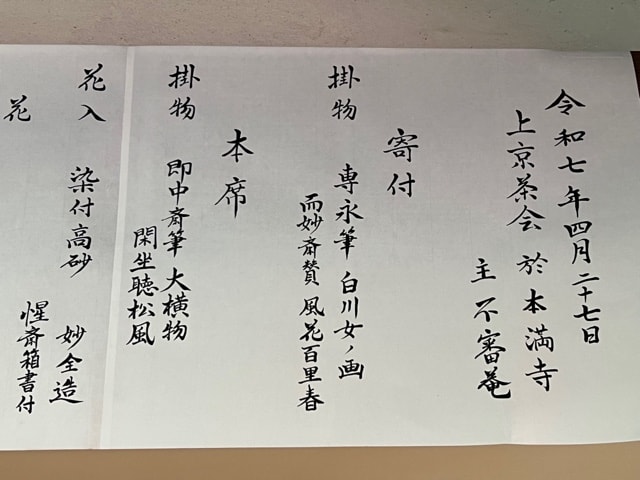 令和七年四月二十七日
上京茶会 於 本満寺
主 不審菴
寄付
掛物 専永筆 白川女ノ画
而妙斎賛 風花百里春
本席
掛物 即中斎筆 大横物
閑坐聴松風
花入 染付高砂 妙全造
惺斎箱書付
花